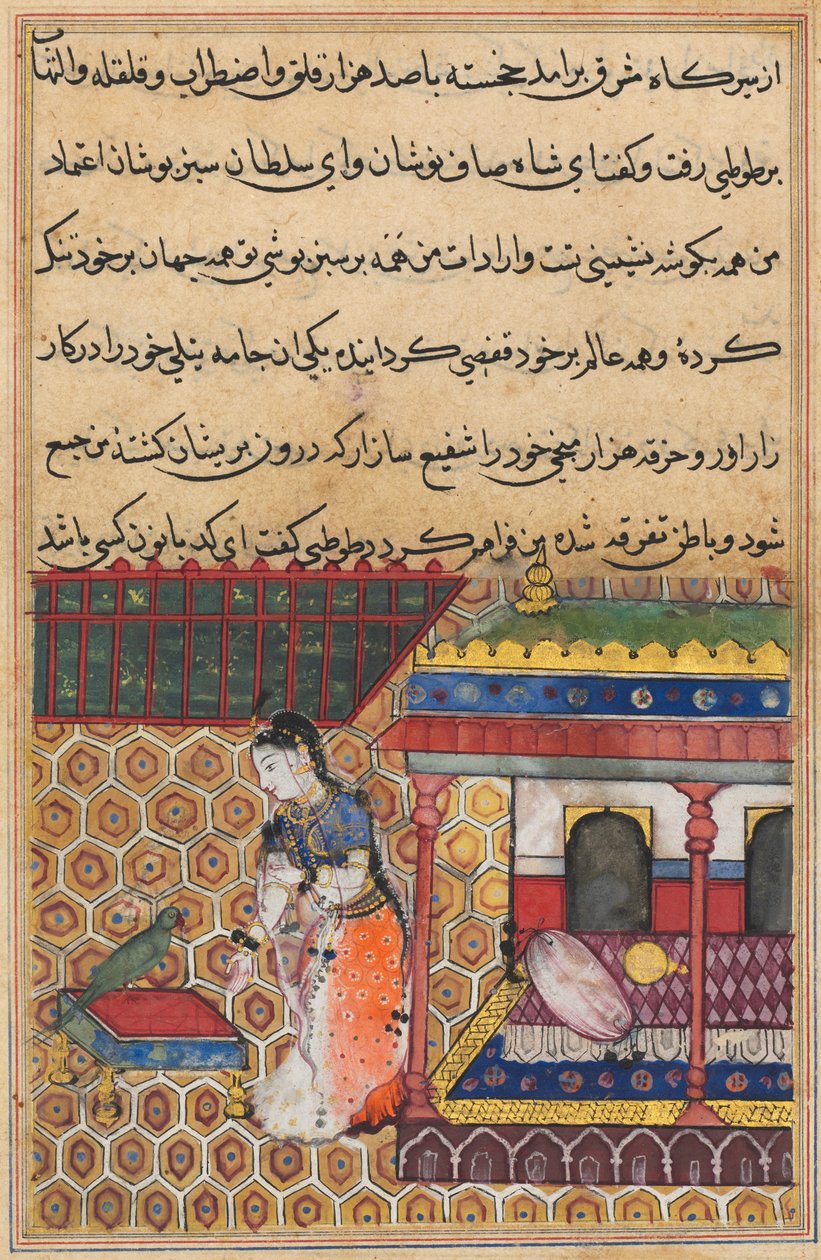 از سیرکاه مشرق برامد خجسته باصد هزار قلق واضطراب وقلقله والتهاب
برطوطی رفت وکفت ای شاه صاف نوشان وای سلطان سبزپوشان اعتماد
من همه بکوشه نشینی تست وارادات من همه برسبزپوشی تو همه جهان برخود تنک
کردهٔ وهمه عالم برخود قفصی کرداینده یکی ان جامه نیلی خود را درکار
زار اور وخرقه هزار میخی خود را شفیع ساز ارکه درون پریشان کشتهٔ من جمع
شود وباطن تفرقه شده من فراهم کردد طوطی کفت ای کدبانون کسی باشد